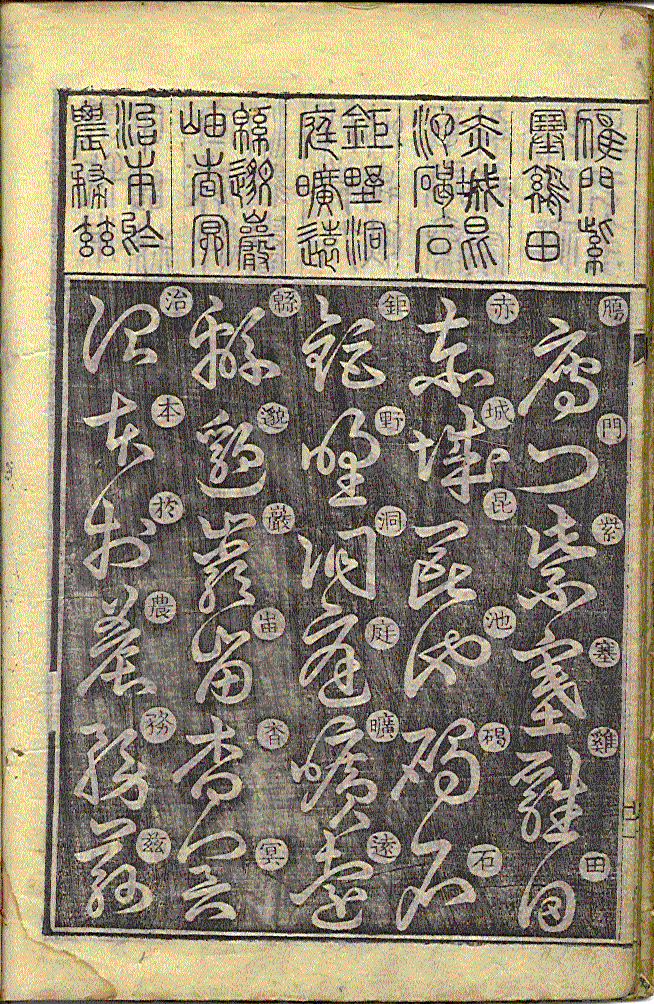 雁門紫
塞鷄田
赤城昆
池碣石
鉅野洞
庭曠遠
緜邈巖
岫杳冥
治本於
農務茲
鴈門紫塞雞田
鴈門紫塞雞田
赤城昆池碣石
赤城昆池碣石
鉅野洞庭曠遠
鉅野洞庭曠遠
緜邈巖峀杳冥
緜邈巖峀杳冥
治本於農務茲
治本於農務茲